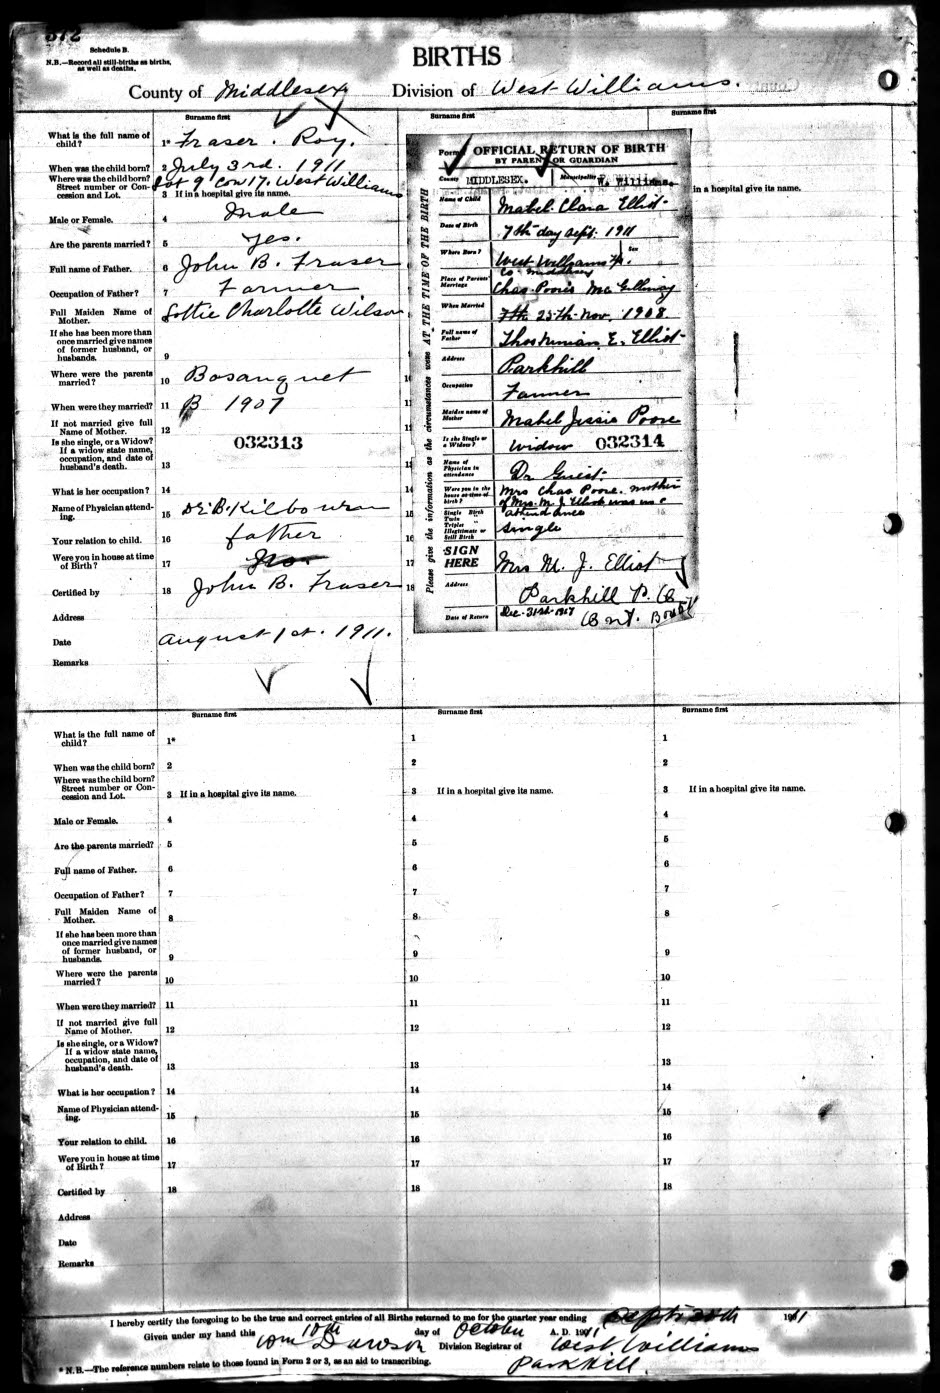 372
Schedule B.
N.B.—Record all still-births as births, as well as deaths.
BIRTHS
County of Middlesex Division of West Williams.
Surname first
What is the full name of child? 1* Fraser. Roy.
When was the child born? 2 July 3rd. 1911
Where was the child born? Street number or Concession and Lot. Lot 9 Con 17, West Williams
3 If in a hospital give its name.
Male or Female. 4 Male
Are the parents married? 5 Yes.
Full name of Father. 6 John B. Fraser
Occupation of Father? 7 Farmer
Full Maiden Name of Mother. Lottie Charlotte Wilson
If she has been more than once married give names of former husband, or husbands. 9
Where were the parents married? 10 Bosanquet
When were they married? 11 B 1907
If not married give full Name of Mother. 12
032313
Is she single, or a Widow? If a widow state name, occupation, and date of husband's death. 13
What is her occupation? 14
Name of Physician attending. 15 Dr. B. Kilbourn
Your relation to child. 16 father
Were you in house at time of Birth? 17 No
Certified by 18 John B. Fraser
Address
Date August 1st. 1911.
Remarks
Surname first
Form
OFFICIAL RETURN OF BIRTH
BY PARENT OR GUARDIAN
County MIDDLESEX. Municipality W. Williams.
Please give the information as the circumstances were AT THE TIME OF THE BIRTH
Name of Child Mabel Clara Elliot
Date of Birth 7th day Sept. 1911
Where Born? West Williams Sex
Co. Middlesex
Place of Parents' Marriage Chas Poore's McGillivray
When Married 7th 25th Nov. 1908
Full name of Father E. Elliot
Address Parkhill
Occupation Farmer
Maiden name of Mother Mabel Jessie Poore
Is she Single or a Widow? Widow 032314
Name of Physician in attendance Dr Guest
Were you in the house at time of birth? Mrs Chas Poore. mother
of Mrs. M. J. Elliot was in
attendance
Single Birth Twin " Triplet " Illegitimate or Still Birth single
SIGN HERE Mrs M. J. Elliot
Address Parkhill P.O.
Ont.
Date of Return Dec. 31st
Surname first
in a hospital give its name.
Surname first
Surname first
Surname first
What is the full name of child? 1* 1 1
When was the child born? 2 2 2
Where was the child born? Street number or Concession and Lot. 3 If in a hospital give its name. 3 If in a hospital give its name. 3 If in a hospital give its name.
Male or Female. 4 4 4
Are the parents married? 5 5 5
Full name of Father. 6 6 6
Occupation of Father? 7 7 7
Full Maiden Name of Mother. 8 8 8
If she has been more than once married give names of former husband, or husbands. 9 9 9
Where were the parents married? 10 10 10
When were they married? 11 11 11
If not married give full Name of Mother. 12 12 12
Is she single, or a Widow? If a widow state name, occupation, and date of husband's death. 13 13 13
What is her occupation? 14 14 14
Name of Physician attending. 15 15 15
Your relation to child. 16 16 16
Were you in house at time of Birth? 17 17 17
Certified by 18 18 18
Address
Date
Remarks
I hereby certify the foregoing to be the true and correct entries of all Births returned to me for the quarter year ending Sept 30th 1911
Given under my hand this 10th day of October A. D. 1911
Wm Dawson Division Registrar of West Williams
Parkhill
* N.B.—The reference numbers relate to those found in Form 2 or 3, as an aid to transcribing.